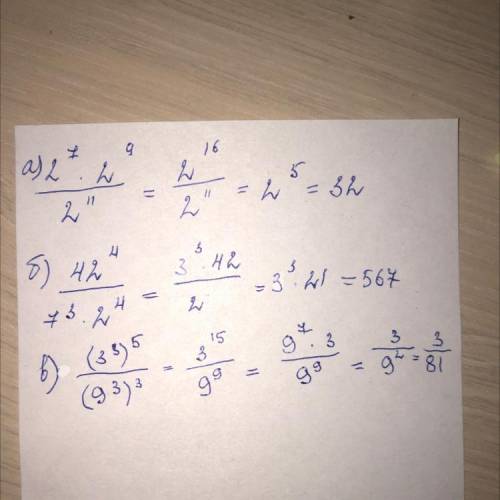 а) (2⁷ · 2⁹)/2¹¹ = 2¹⁶/2¹¹ = 2⁵ = 32
б) 42⁴/(7³ · 2⁴) = (3³ · 42)/2 = 3³ · 21 = 567
в) (3³)⁵/(9³)³ = 3¹⁵/9⁹ = (9⁷ · 3)/9⁹ = 3/9² = 3/81